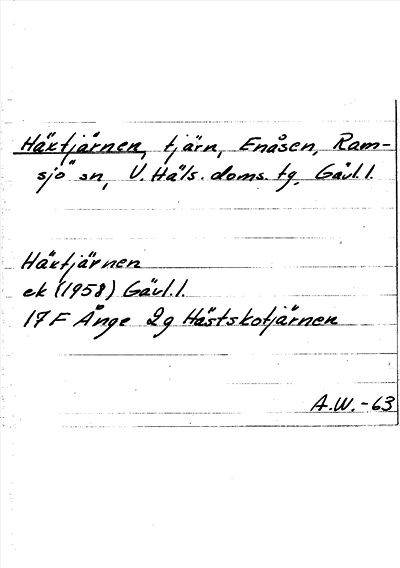 Häxtjärnen, tjärn, Enåsen, Ram-
sjö sn, V. Häls. doms. tg, Gävl. l.
Häxtjärnen
ek (1958) Gävl. l.
17 F Ånge 2g Hästskotjärnen
A.W. -63